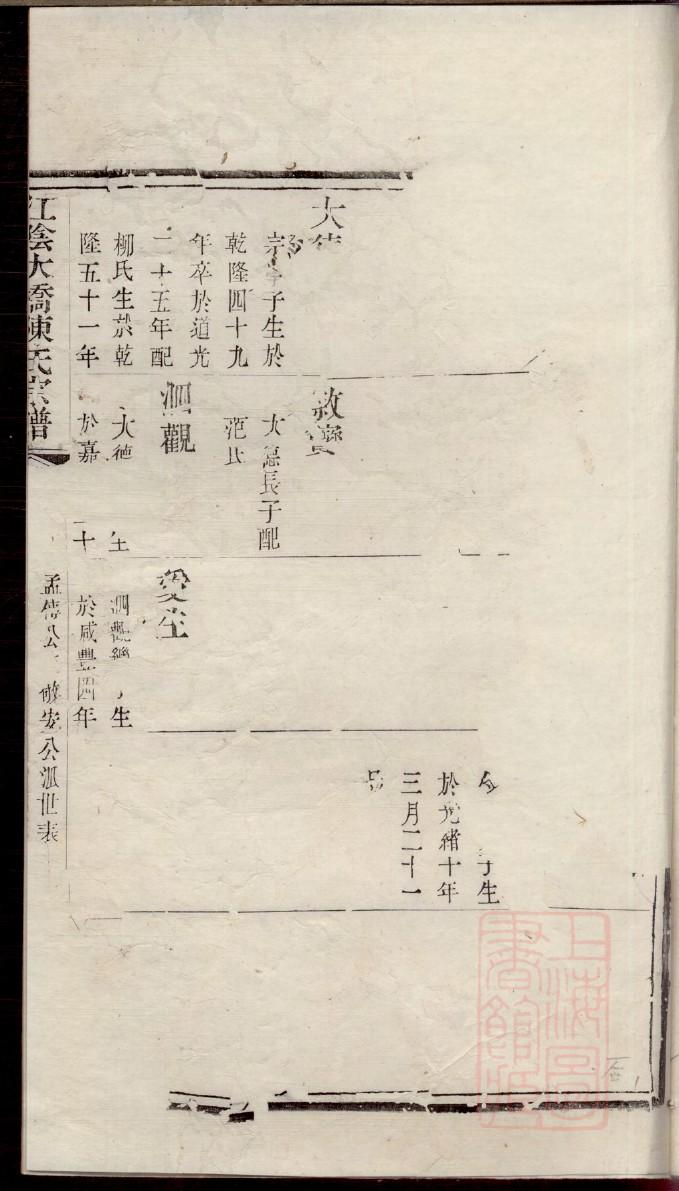 大
宗 子生於
乾隆四十九
年卒於道光
二十五年配
柳氏生於乾
隆五十一年
敘寶
大德長子配
范氏
泗觀
大德 生
於嘉 十
愛生
泗觀 生
於咸豐四年
子生
於光緒十年
三月二十一
江陰大橋陳氏宗譜
孟傳公 敬安公派世表
上海圖書館藏